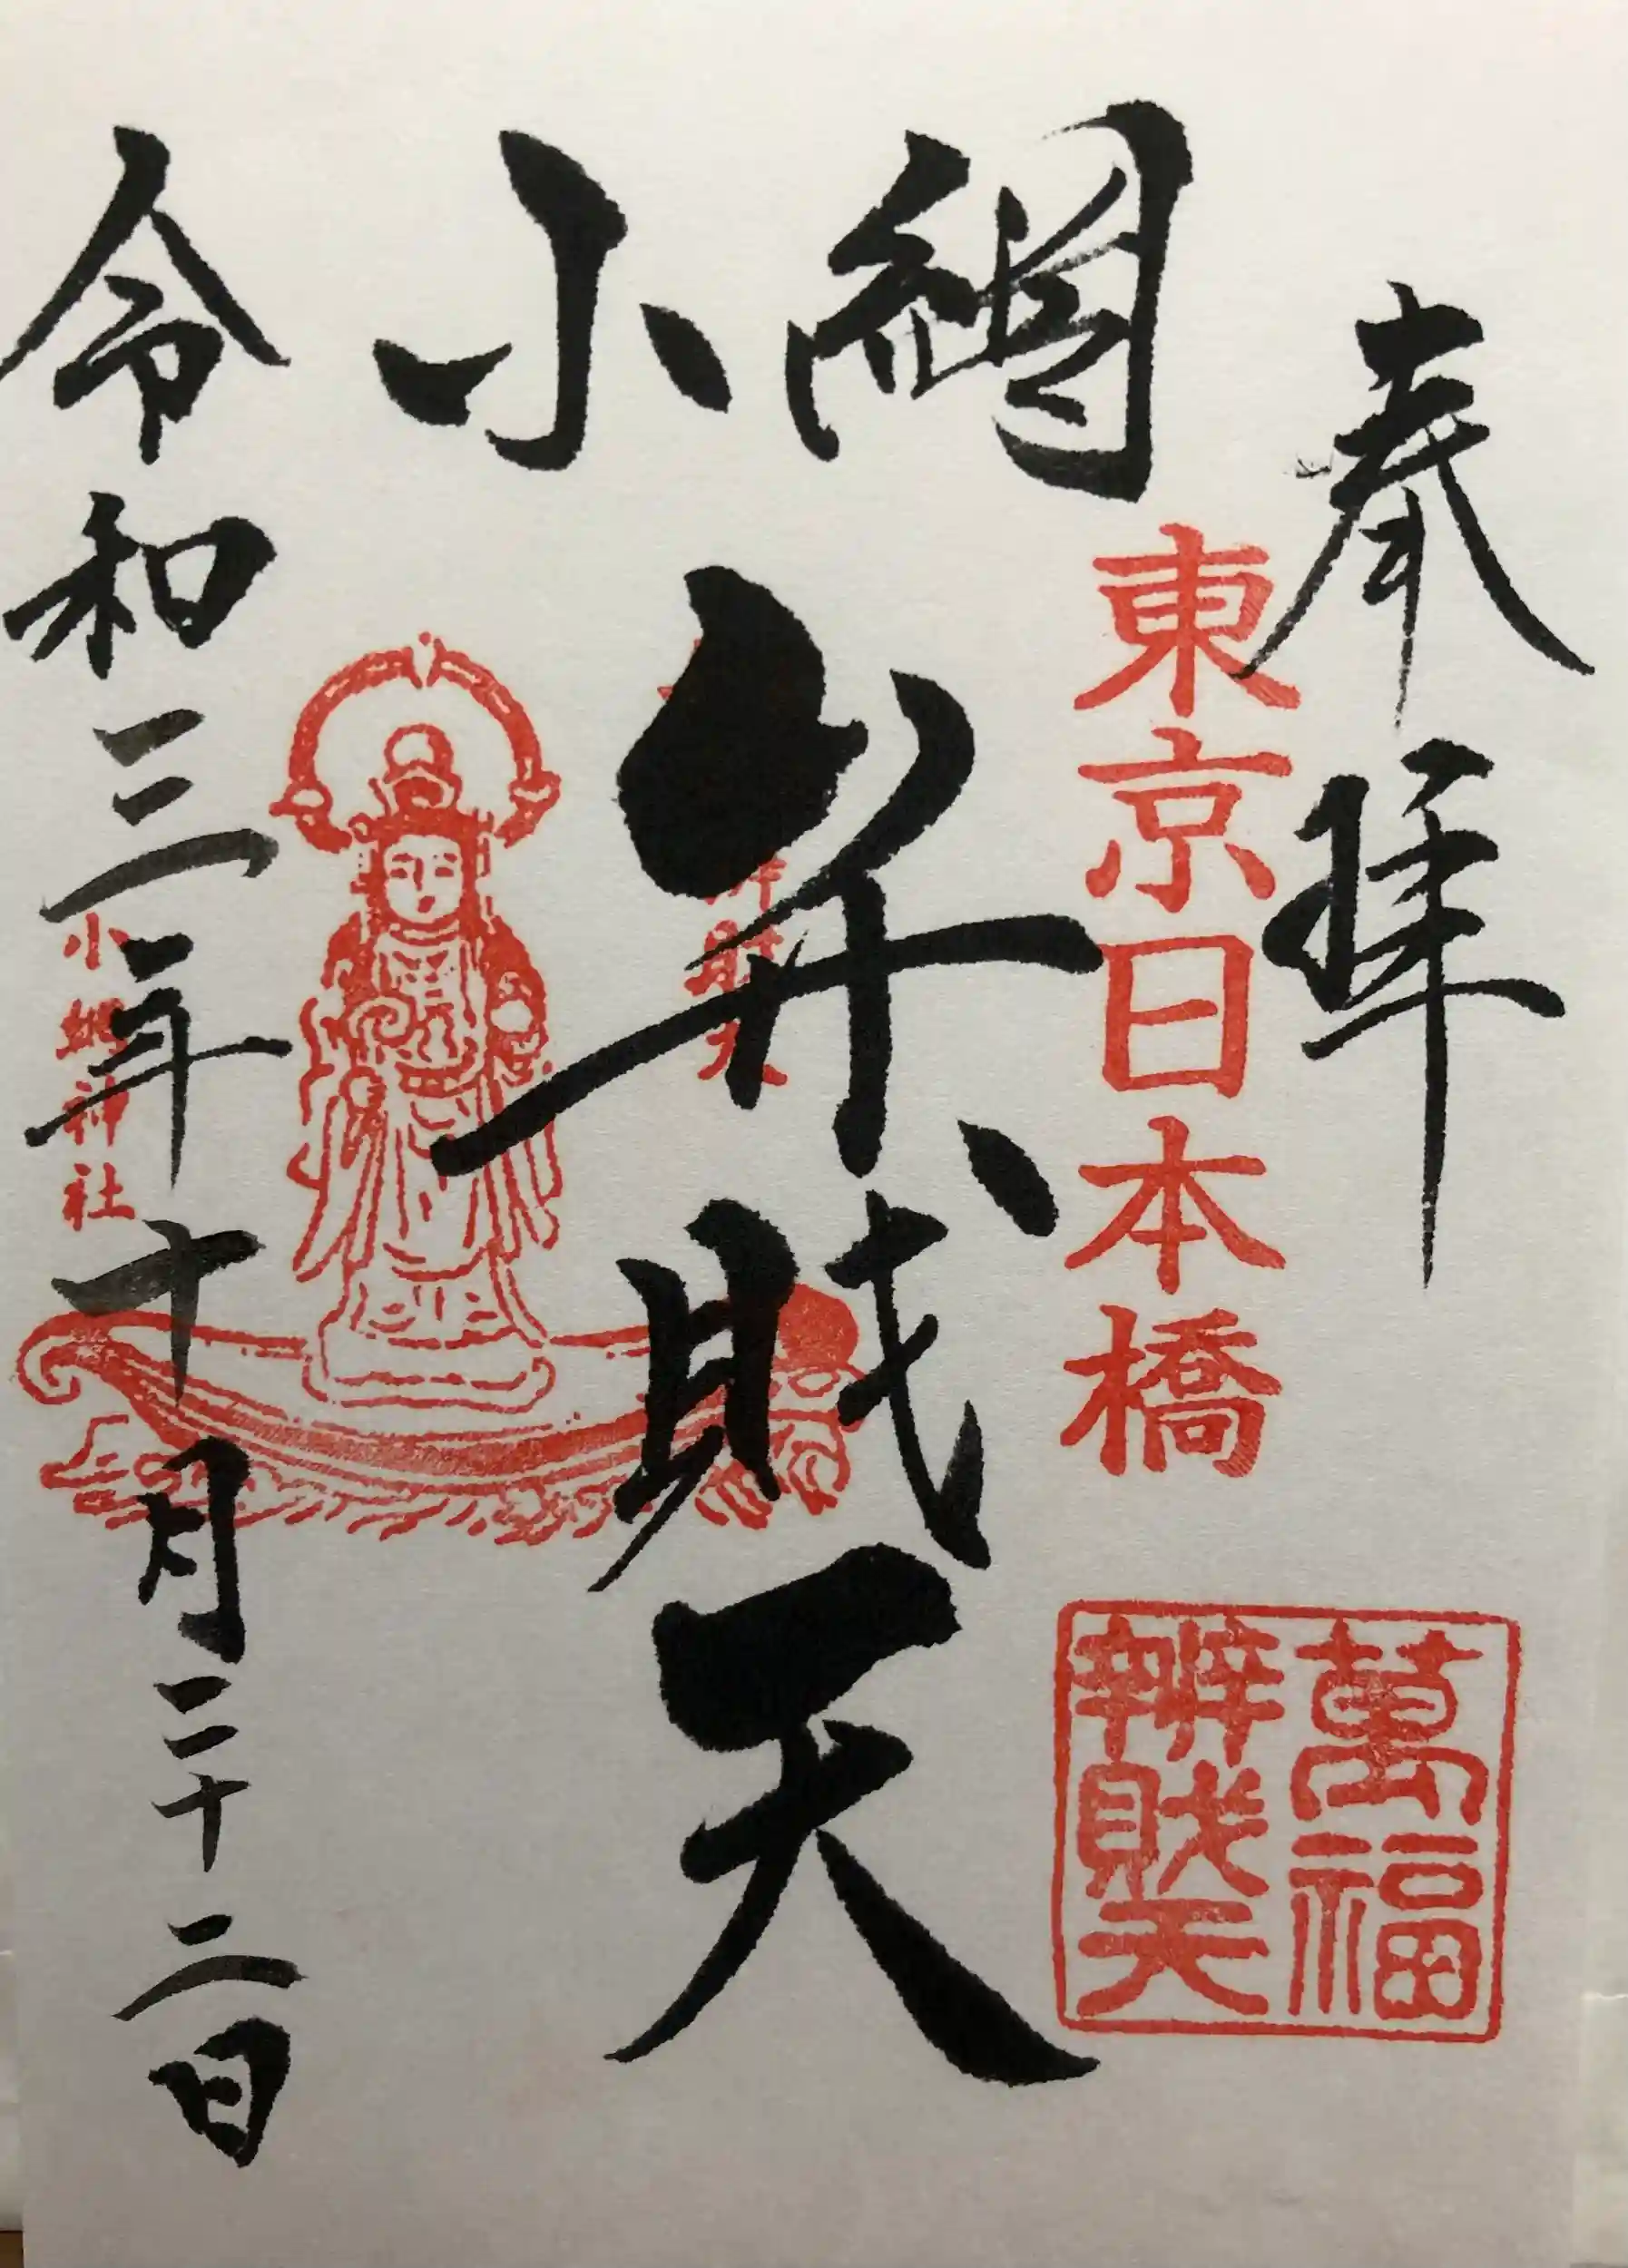 奉拝
東京日本橋
小網
弁財天
萬福
辨財天
小網神社
令和三年十月二十二日